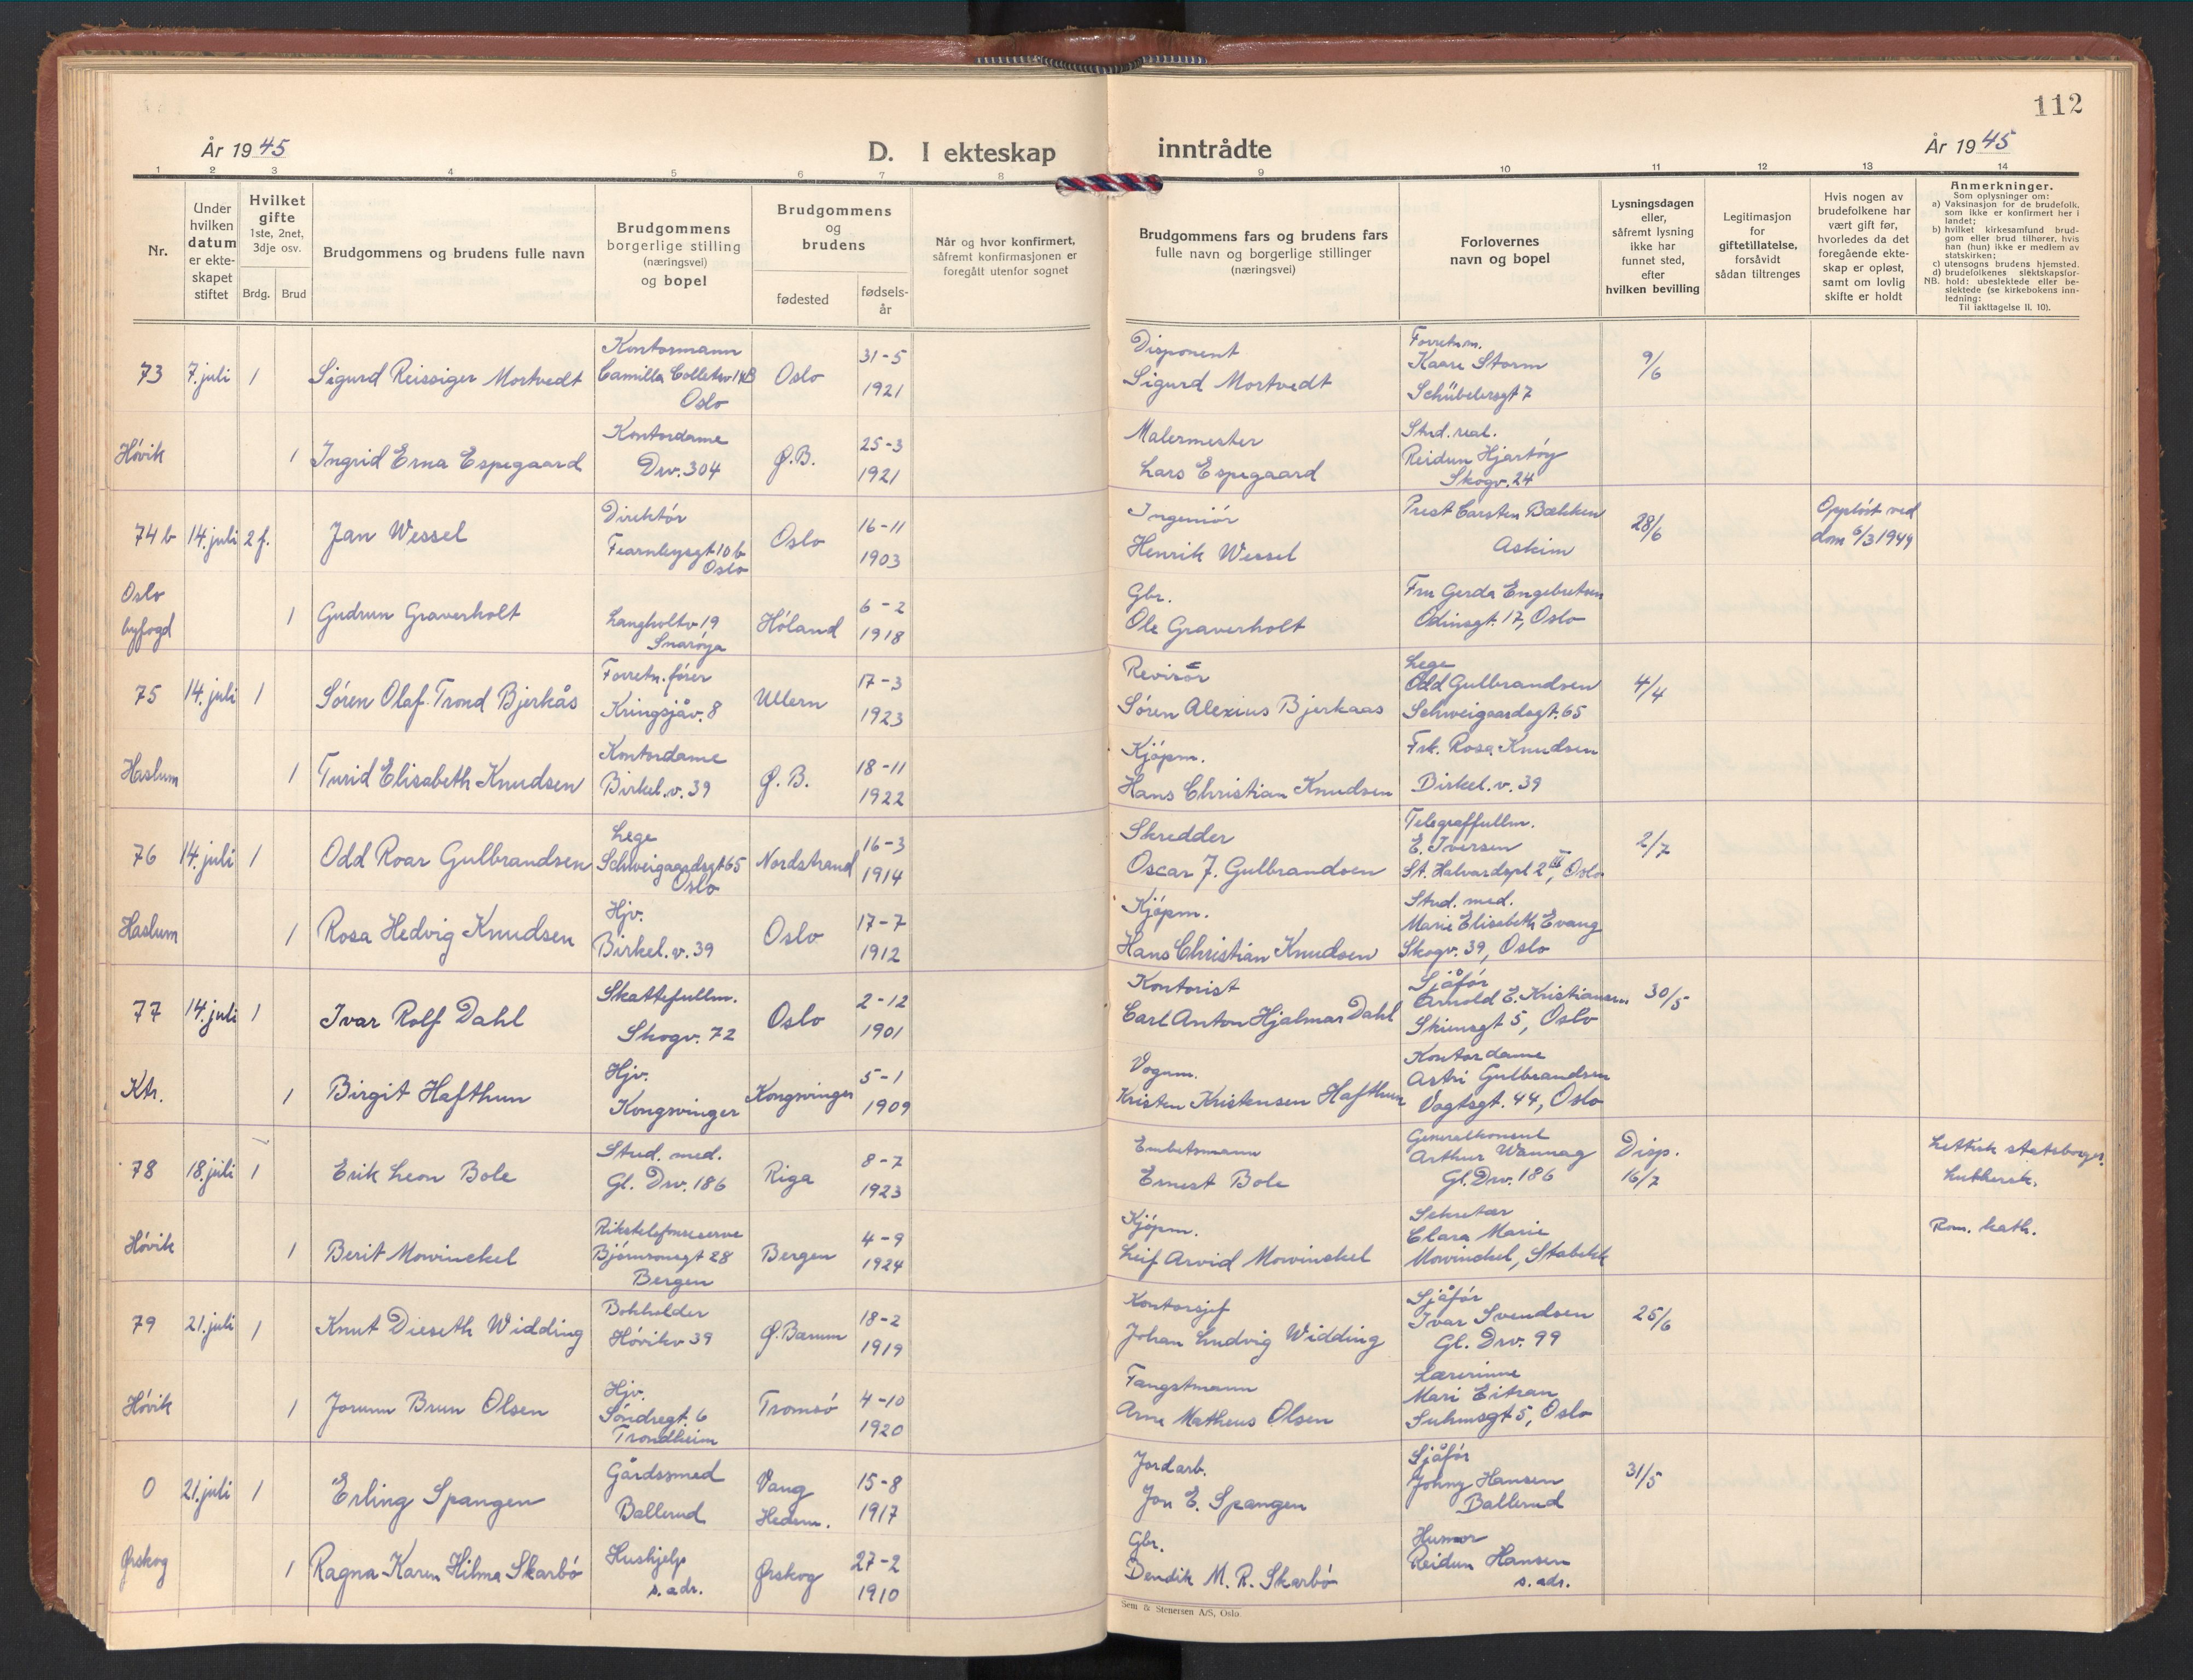 112
År 1945
D. I ekteskap inntrådte
År 1945
1 2 3 4 5 6 7 8 9 10 11 12 13 14
Nr.
Under
hvilken
datum
er ekte-
skapet
stiftet
Hvilket
gifte
1ste, 2net,
3dje osv.
Brdg. Brud
Brudgommens og brudens fulle navn
Brudgommens
borgerlige stilling
(næringsvei)
og bopel
Brudgommens
og
brudens
fødested
fødsels-
år
Når og hvor konfirmert,
såfremt konfirmasjonen er
foregått utenfor sognet
Brudgommens fars og brudens fars
fulle navn og borgerlige stillinger
(næringsvei)
Forlovernes
navn og bopel
Lysningsdagen
eller,
såfremt lysning
ikke har
funnet sted,
efter
hvilken bevilling
Legitimasjon
for
giftetillatelse,
forsåvidt
sådan tiltrenges
Hvis nogen av
brudefolkene har
vært gift før,
hvorledes da det
foregående ekte-
skap er opløst,
samt om lovlig
skifte er holdt
Anmerkninger.
Som oplysninger om:
a) Vaksinasjon for de brudefolk,
som ikke er konfirmert her i
landet;
b) hvilket kirkesamfund brud-
gom eller brud tilhører, hvis
han (hun) ikke er medlem av
statskirken;
c) utensogns brudens hjemsted.
d) brudefolkenes slektskapsfor-
NB. hold: ubeslektede eller be-
slektede (se kirkebokens inn-
ledning:
Til iakttagelse II. 10).
73 7. juli 1 Sigurd Reissiger Mortvedt
Kontormann
Camilla Colletsv 14B
Oslo
Oslo
31-5
1921
Disponent
Sigurd Mortvedt
Forretnm.
Kaare Storm
Schübelersgt 7
9/6
Høvik 1 Ingrid Erna Espegaard
Kontordame
Drv. 304
Ø.B.
25-3
1921
Malermester
Lars Espegaard
Stud. real.
Reidun Hjartøy
Skogv. 24
74 b 14. juli 2 f. Jan Wessel
Direktör
Fearnleysgt 10 b
Oslo
Oslo
16-11
1903
Ingeniör
Henrik Wessel
Prest Carsten Bækken
Askim
28/6
Oppløst ved
dom 6/3 1944
Oslo
byfogd
1 Gudrun Graverholt
Langholtv 19
Snarøya
Höland
6-2
1918
Gbr.
Ole Graverholt
Fru Gerda Engebretsen
Odinsgt. 17, Oslo
75 14. juli 1 Søren Olaf Trond Bjerkås
Forretn. fører
Kringsjåv. 8
Ullern
17-3
1923
Revisor
Søren Alexius Bjerkaas
Lege
Odd Gulbrandsen
Schweigaardsgt. 65
4/4
Haslum 1 Turid Elisabeth Knudsen
Kontordame
Birkel. v. 39
Ø.B.
18-11
1922
Kjøpm.
Hans Christian Knudsen
Frk. Rosa Knudsen
Birkel. v. 39
76 14. juli 1 Odd Roar Gulbrandsen
Lege
Schweigaardsgt 65
Oslo
Nordstrand
16-3
1914
Skredder
Oscar J. Gulbrandsen
Telegraffullm.
E. Iversen
St. Halvardspl 2 III, Oslo
2/7
Haslum 1 Rosa Hedvig Knudsen
Hjv.
Birkel. v. 39
Oslo
17-7
1912
Kjøpm.
Hans Christian Knudsen
Stud. med.
Marie Elisabeth Evang
Skogv. 39, Oslo
77 14. juli 1 Ivar Rolf Dahl
Skattefullm.
Skogv. 72
Oslo
2-12
1901
Kontorist
Carl Anton Hjalmar Dahl
Sjåför
Arnold E. Kristiansen
Skiensgt 5, Oslo
30/5
Ktr. 1 Birgit Hafthun
Hjv.
Kongsvinger
Kongsvinger
5-1
1909
Vognm.
Kristen Kristensen Hafthun
Kontordame
Astri Gulbrandsen
Vogtsgt. 44, Oslo
78 18. juli 1 Erik Leon Bole
Stud. med.
Gl. Drv. 186
Riga
8-7
1923
Embetsmann
Ernest Bole
Generalkonsul
Arthur Wannag
Gl. Drv. 186
Disp.
16/7
Lettisk statsborger.
Luthersk.
Høvik 1 Berit Mowinckel
Rikstelefonreserve
Bjørnsonsgt 28
Bergen
Bergen
4-9
1924
Kjöpm.
Leif Arvid Mowinckel
Sekretær
Clara Marie
Mowinckel, Stabekk
Rom. kath.
79 21. juli 1 Knut Dieseth Widding
Bokholder
Høvikv 39
Ø. Bærum
18-2
1919
Kontorsjef
Johan Ludvig Widding
Sjåför
Ivar Svendsen
Gl. Drv. 99
25/6
Høvik 1 Jorunn Brun Olsen
Hjv.
Söndregt. 6
Trondheim
Tromsö
4-10
1920
Fangstmann
Arne Matheus Olsen
Lærerinne
Mari Eitran
Suhmsgt 5, Oslo
0 21. juli 1 Erling Spangen
Gårdssmed
Ballerud
Vang
Hedm.
15-8
1917
Jordarb.
Jon E. Spangen
Sjåför
Johny Hansen
Ballerud
31/5
Ørskog 1 Ragna Karen Hilma Skarbö
Hushjelp
s. adr.
Ørskog
27-2
1910
Gbr.
Dendik M. R. Skarbö
Husmor
Reidun Hansen
s. adr.
Sem & Stenersen A/S, Oslo.